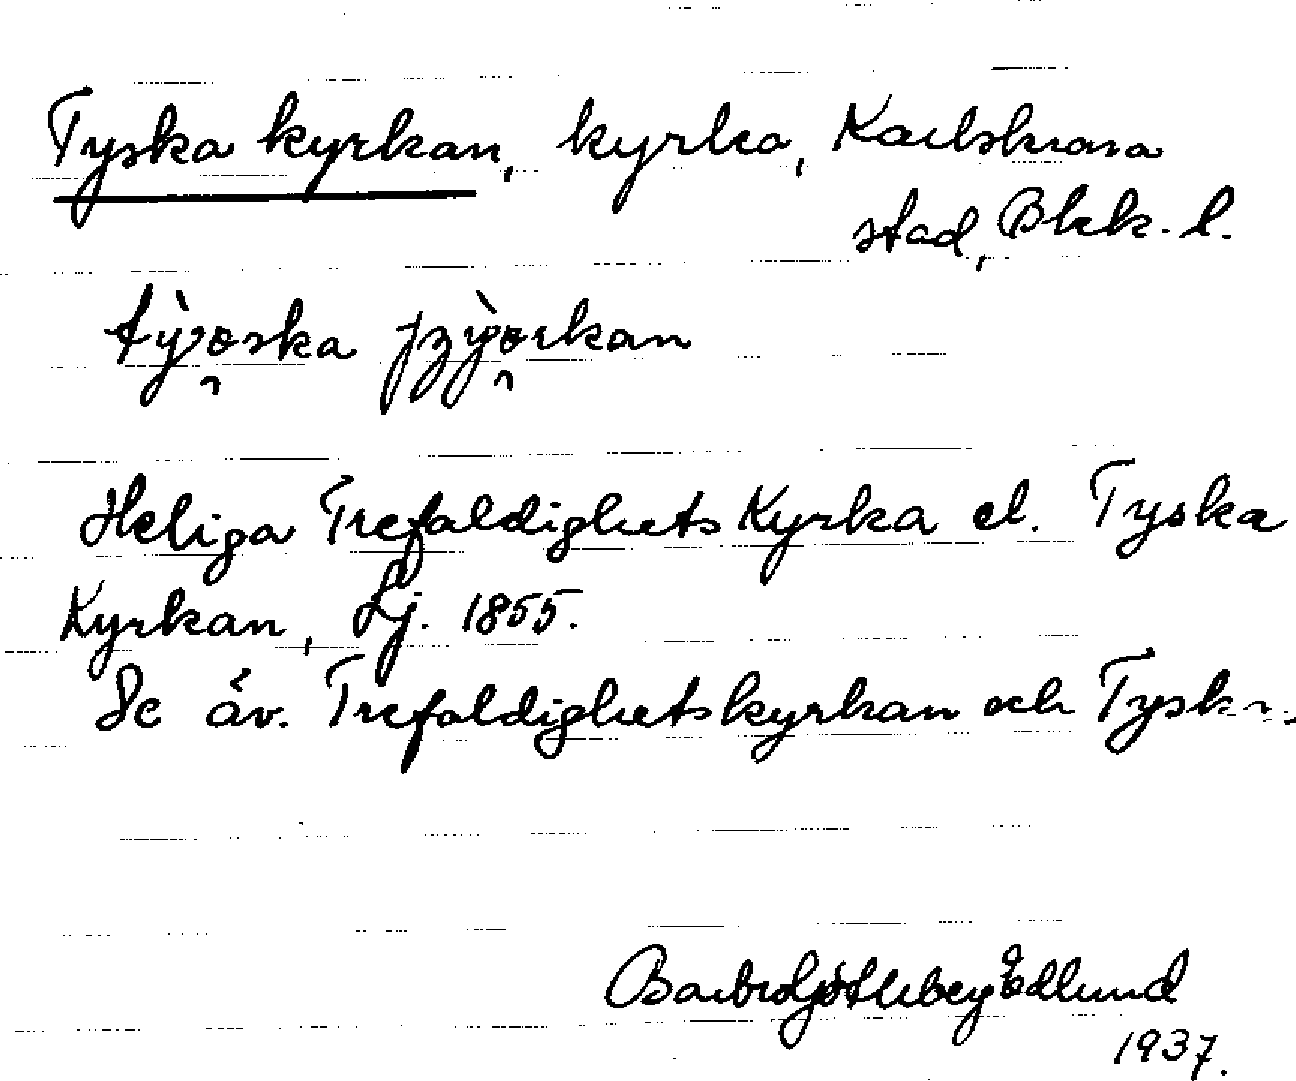 Tyska kyrkan, kyrka, Karlskrona
stad, Blek. l.
Heliga Trefaldighets Kyrka el. Tyska
Kyrkan, Lj. 1855.
Se äv. Trefaldighetskyrkan och Tysk
Barbro Göthberg Edlund
1937.